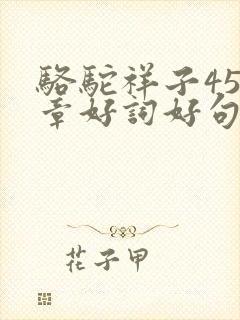 駱駝祥子45
章好詞好句
花子甲